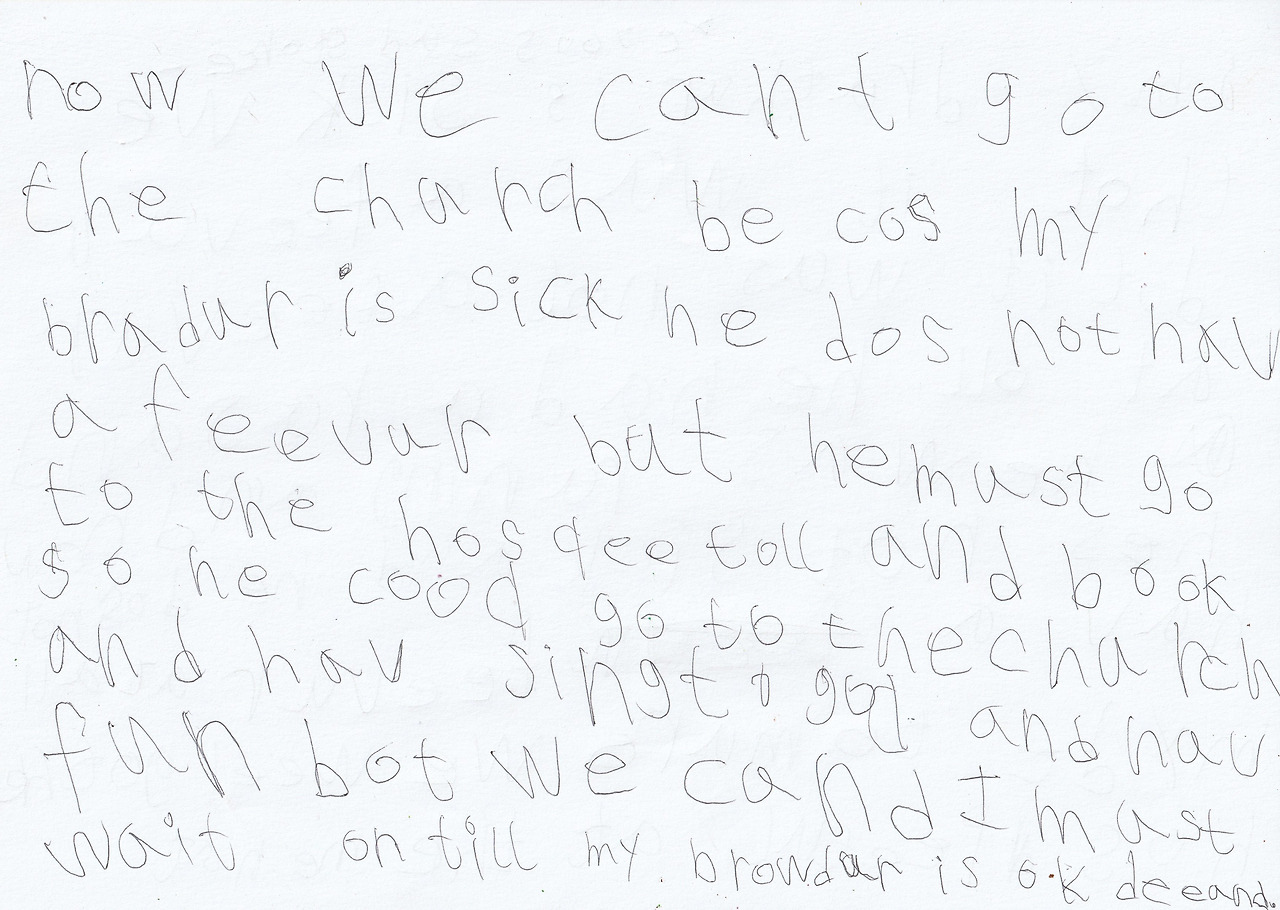 now we cant go to
the church be cos my
bradur is sick he dos not hav
a feevur but he must go
to the hosqeetoll and book
so he cood go to the church
and hav sing to god and hav
fun bot we cand I must
wait on till my browdur is ok deeand.